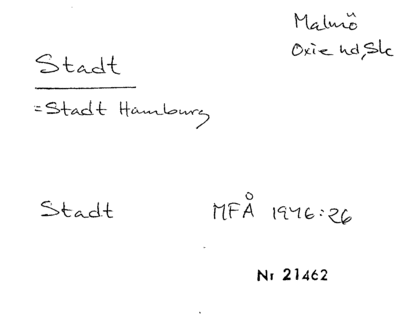 Malmö
Oxie hd, Sk
Stadt
=Stadt Hamburg
Stadt MFÅ 1946:26
Nr 21462